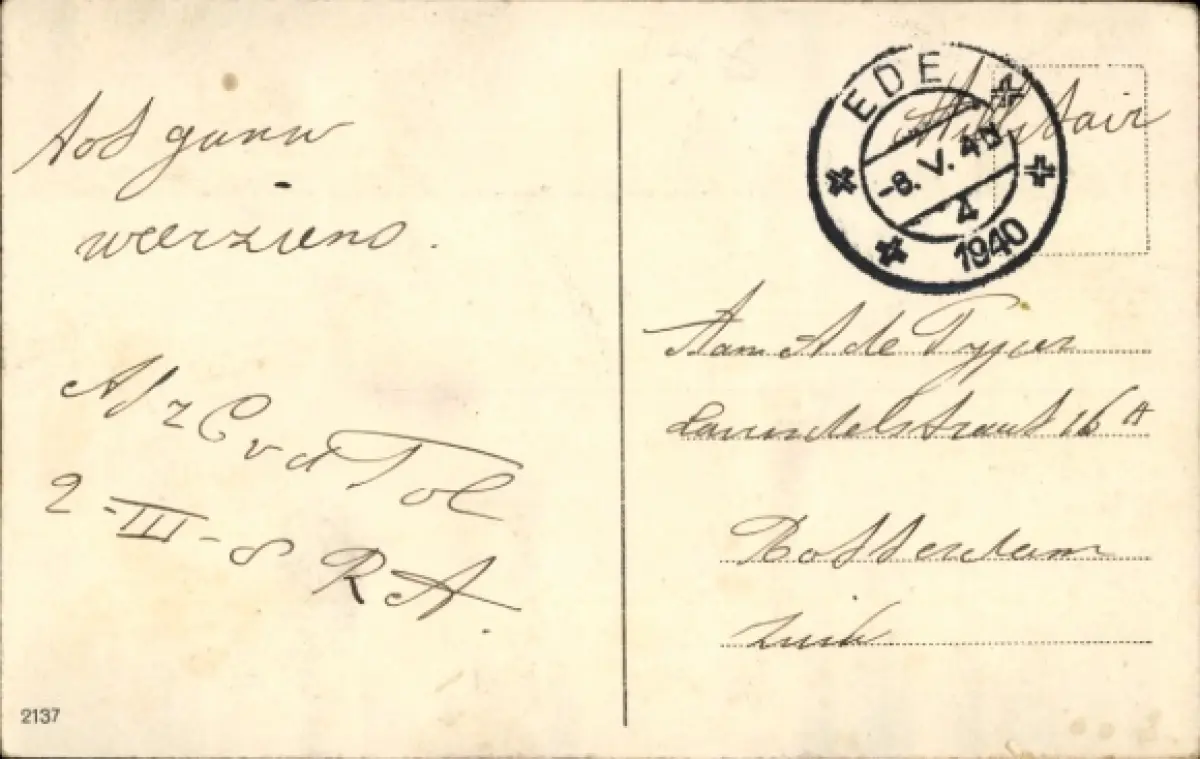 Tot gauw
weerziens.
Afz C v d Tol
2-III-8 R A.
2137
EDE
-8.V.40
4
1940
Militair
Aan A de Pyper
Lavendelstraat 16 A
Rotterdam
Zuid